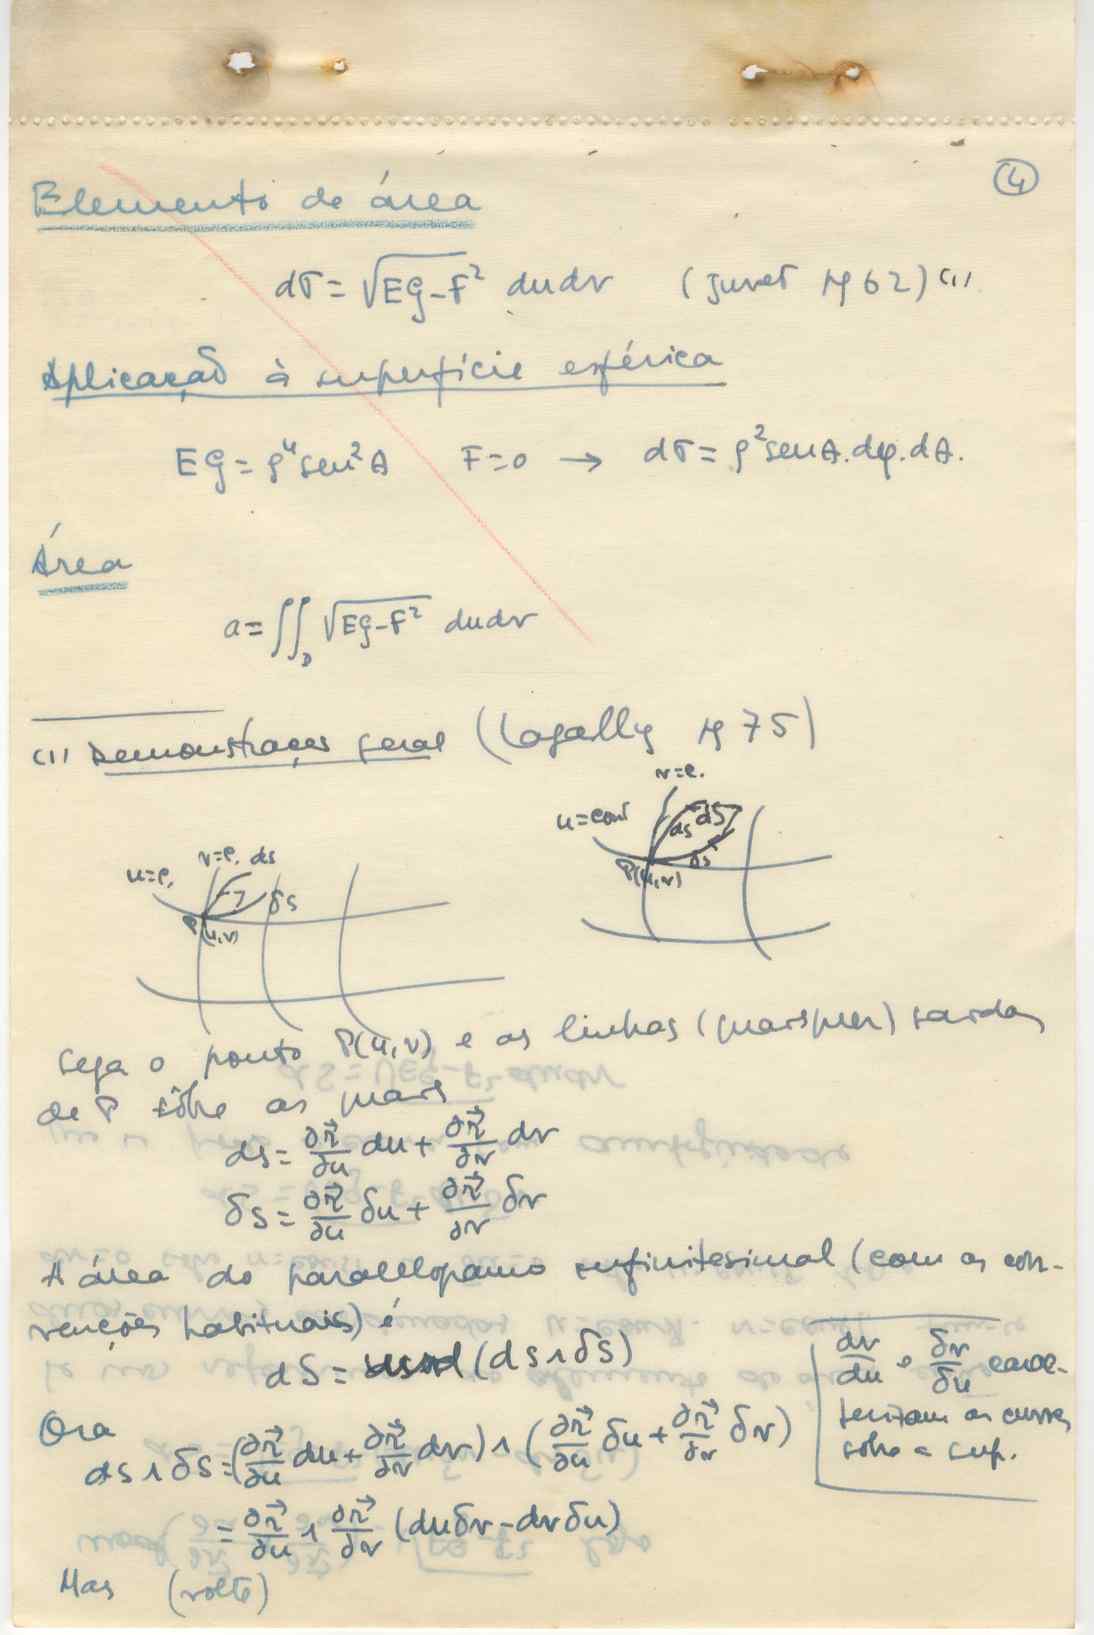 ④
Elemento de área
dσ = √(EG-F²) du dv (Juvet pg 62) (1)
Aplicação à superfície esférica
EG = ρ⁴ sen² θ F=0 → dσ = ρ² sen θ. dφ. dθ.
Área
a = ∬_D √(EG-F²) du dv
(1) Demonstração geral (Lagally pg 75)
v=c.
u=const
ds dS
δs
P(u,v)
v=c. ds
u=c.
δs
P(u,v)
Seja o ponto P(u,v) e as linhas (quaisquer) saídas
de P sôbre as quais
ds = ∂r⃗/∂u du + ∂r⃗/∂v dv
δs = ∂r⃗/∂u δu + ∂r⃗/∂v δv
A área do paralelogramo infinitesimal (com as con-
venções habituais) é
dS = (ds ∧ δs)
dv/du e δv/δu carac-
terizam as curvas
sôbre a sup.
Ora
ds ∧ δs = (∂r⃗/∂u du + ∂r⃗/∂v dv) ∧ (∂r⃗/∂u δu + ∂r⃗/∂v δv)
= ∂r⃗/∂u ∧ ∂r⃗/∂v (du δv - dv δu)
Mas (volte)